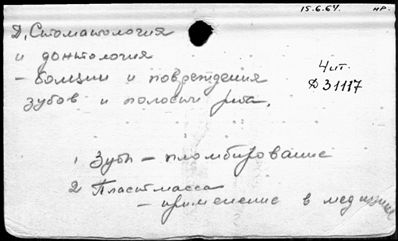 15.6.64. нр.
Д. Стоматология
и донтология
- болезни и повреждения
зубов и полости рта.
Чит.
Д31117
1 Зубы - пломбирование
2 Пластмасса
- применение в медицине